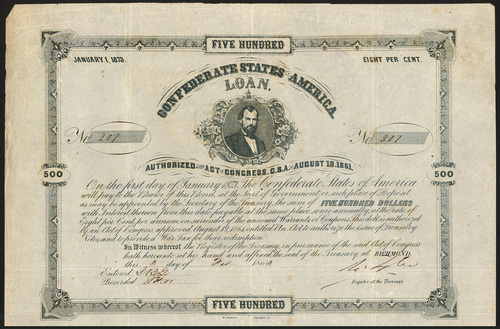 FIVE HUNDRED
JANUARY 1, 1873.
EIGHT PER CENT.
CONFEDERATE STATES AMERICA
LOAN.
No 207
No 207
AUTHORIZED ACT CONGRESS, C.S.A. AUGUST 19, 1861.
500
500
On the first day of January 1873. The Confederate States of America
will pay to the Bearer of this Bond, at the Seat of Government, or such place of Deposit
as may be appointed by the Secretary of the Treasury, the sum of FIVE HUNDRED DOLLARS
with Interest thereon from this date payable at the same place, semi annually, at the rate of
Eight per Cent per annum, on surrender of the annexed Warrants or Coupons. This debt is authorized
by an Act of Congress approved August 19, 1861 entitled An Act to authorize the issue of Treasury
Notes and to provide a War Tax for their redemption
In Witness whereof the Register of the Treasury in pursuance of the said Act of Congress
hath hereunto set his hand and affixed the seal of the Treasury at RICHMOND
this day of
Entered
Recorded
Register of the Treasury
FIVE HUNDRED